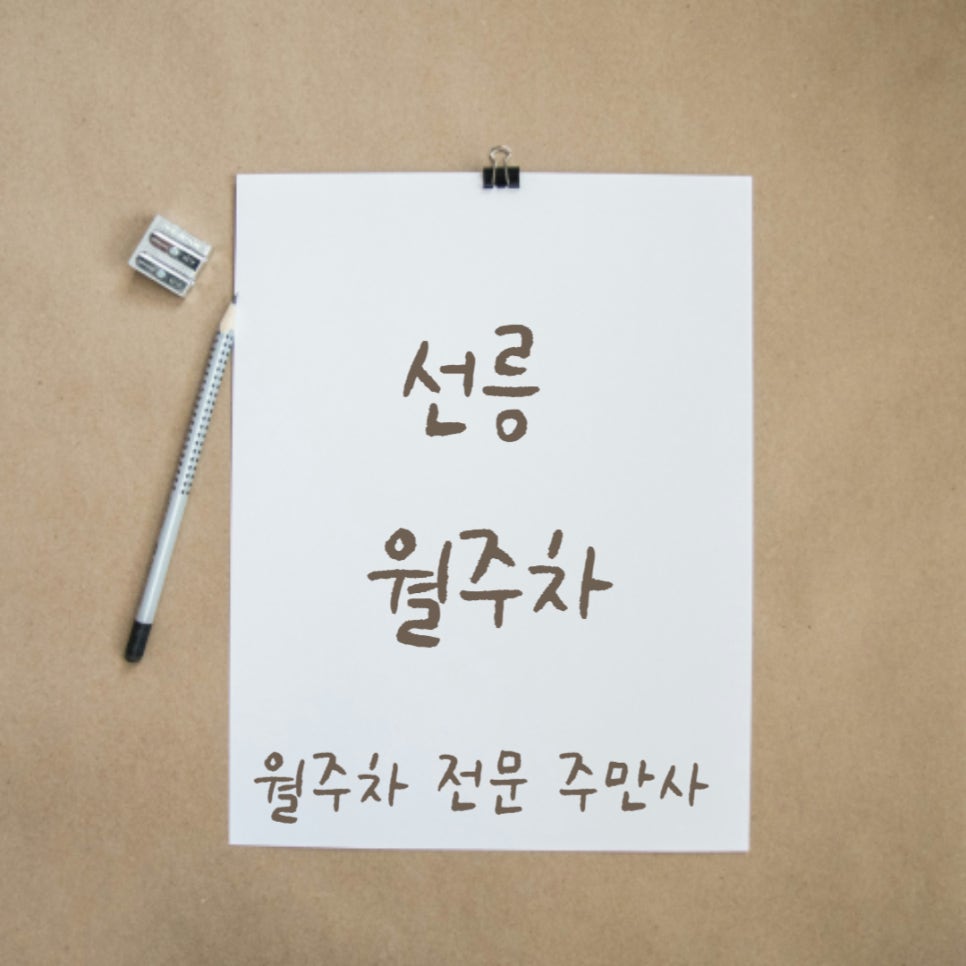 선릉
월주차
월주차 전문 주만사